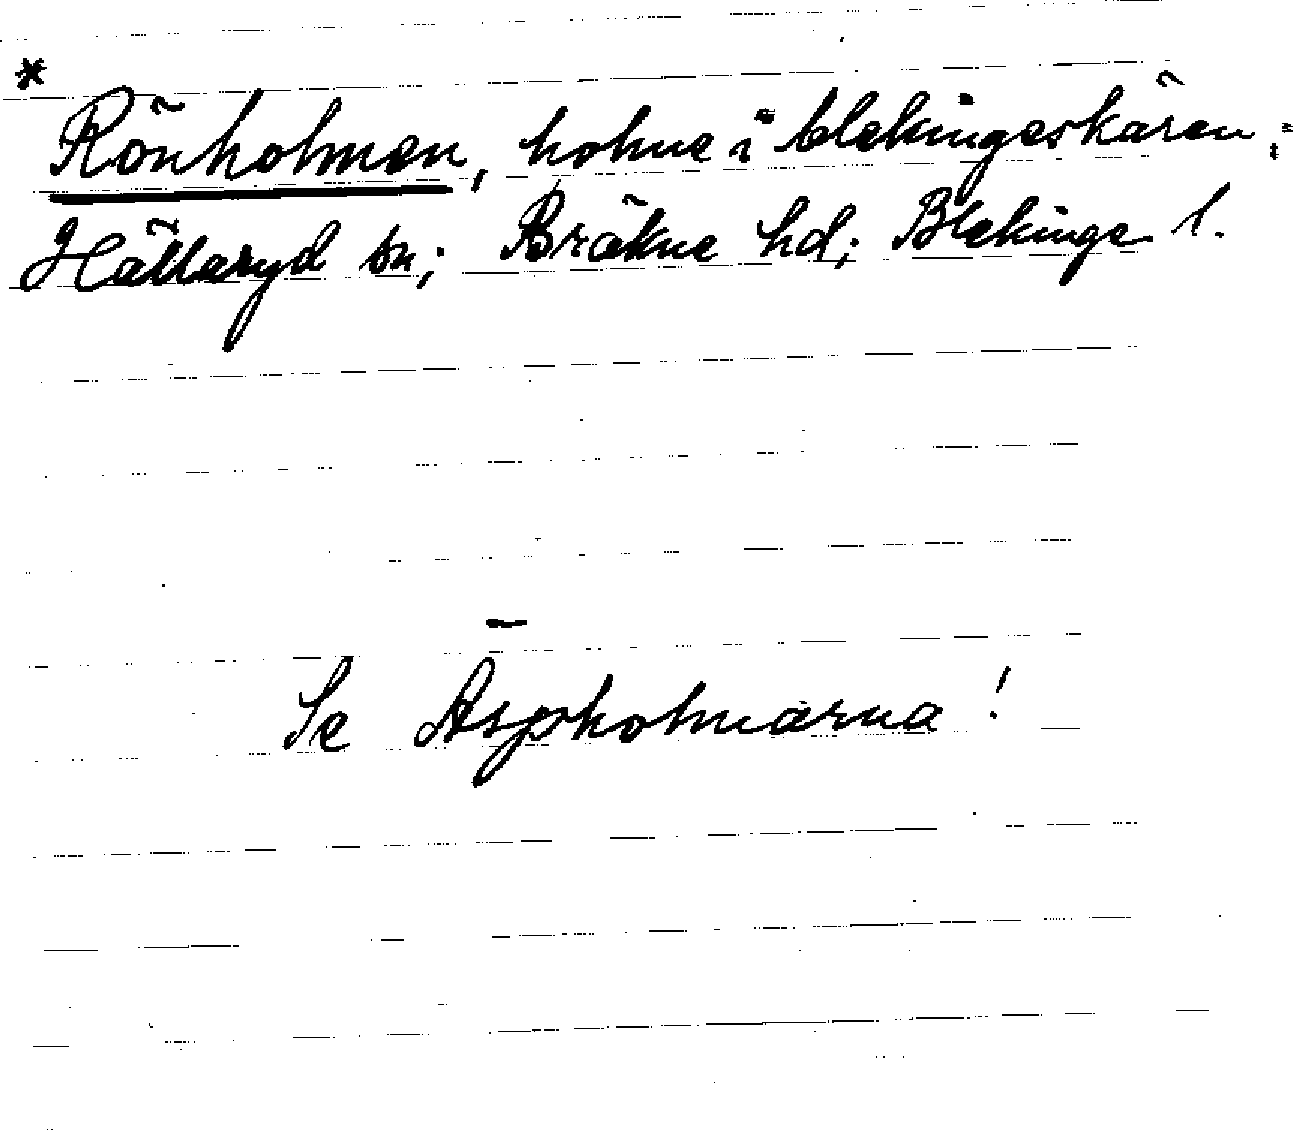 *
Rönholmen, holme i blekingeskären;
Hällaryd sn; Bräkne hd; Blekinge l.
Se Aspholmarna!